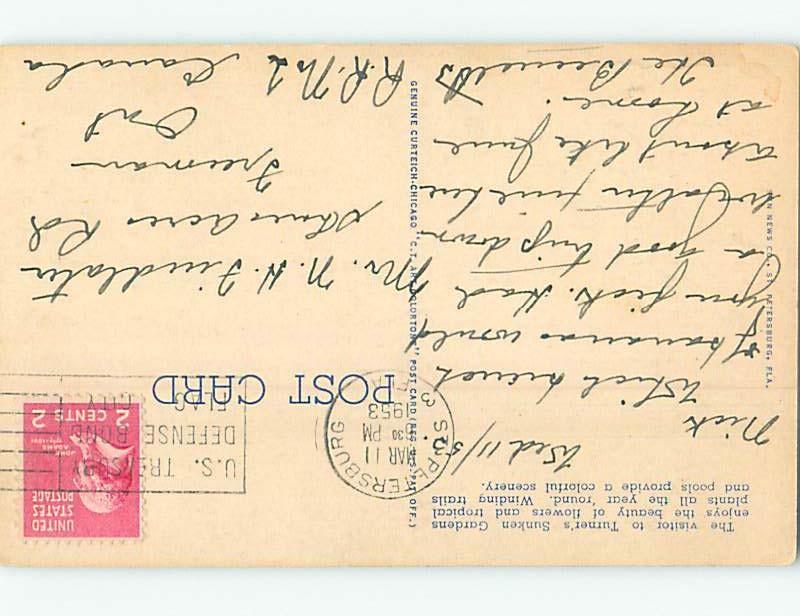 The visitor to Turner's Sunken Gardens
enjoys the beauty of flowers and tropical
plants all the year 'round. Winding trails
and pools provide a colorful scenery.
Wed 11/53.
Nick
Which bunch
of bananas would
you pick. Had
a good trip down
weather fine here
about like June
at home.
The Bennetts
N NEWS CO., ST. PETERSBURG, FLA.
GENUINE CURTEICH-CHICAGO "C.T. ART-COLORTONE" POST CARD (REG. U.S. PAT. OFF.)
POST CARD
ST. PETERSBURG
MAR 11
30 PM
1953
U.S. TREASURY
DEFENSE BOND
FLAG
CITY
UNITED
STATES
POSTAGE
JOHN
ADAMS
2 CENTS 2
Mr. N. H. Findlater
Shoreacres Rd
Freeman
Ont
R.R. No 1 Canada